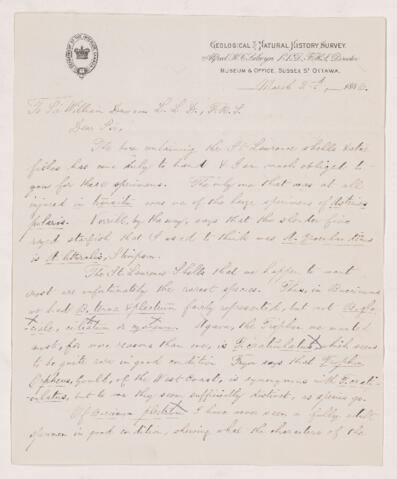 GEOLOGICAL & NATURAL HISTORY SURVEY.
Alfred R. C. Selwyn, LL.D., F.R.S. Director
MUSEUM & OFFICE, SUSSEX ST OTTAWA.
March 2nd, 188
To Sir William Dawson L. L. D., F.R.S.
Dear Sir,
The box containing the St Lawrence shells & star
fishes has come duly to hand & I am much obliged to
you for these specimens. The only one that was at all
injured in transit was one of the large specimens of Asterias
polaris. Verrill, by the way, says that the slender five
rayed starfish that I used to think was A. Groenlandicus
is A. littoralis, Stimpson.
The St Lawrence shells that we happen to want
most are unfortunately the rarest species. Thus, in Buccinum
we had B. & plectrum fairly represented, but not
ciliatum or . Again, the Trophon we wanted
most, for more reasons than one, is T. craticulatus which seems
to be quite rare in good condition. says that Trophon
Orpheus, Gould, of the West Coast, is synonymous with T. crati-
culatus, but to me they seem sufficiently distinct, as species go.
Of Buccinum I have never seen a fully adult
specimen in good condition, showing what the characters of the